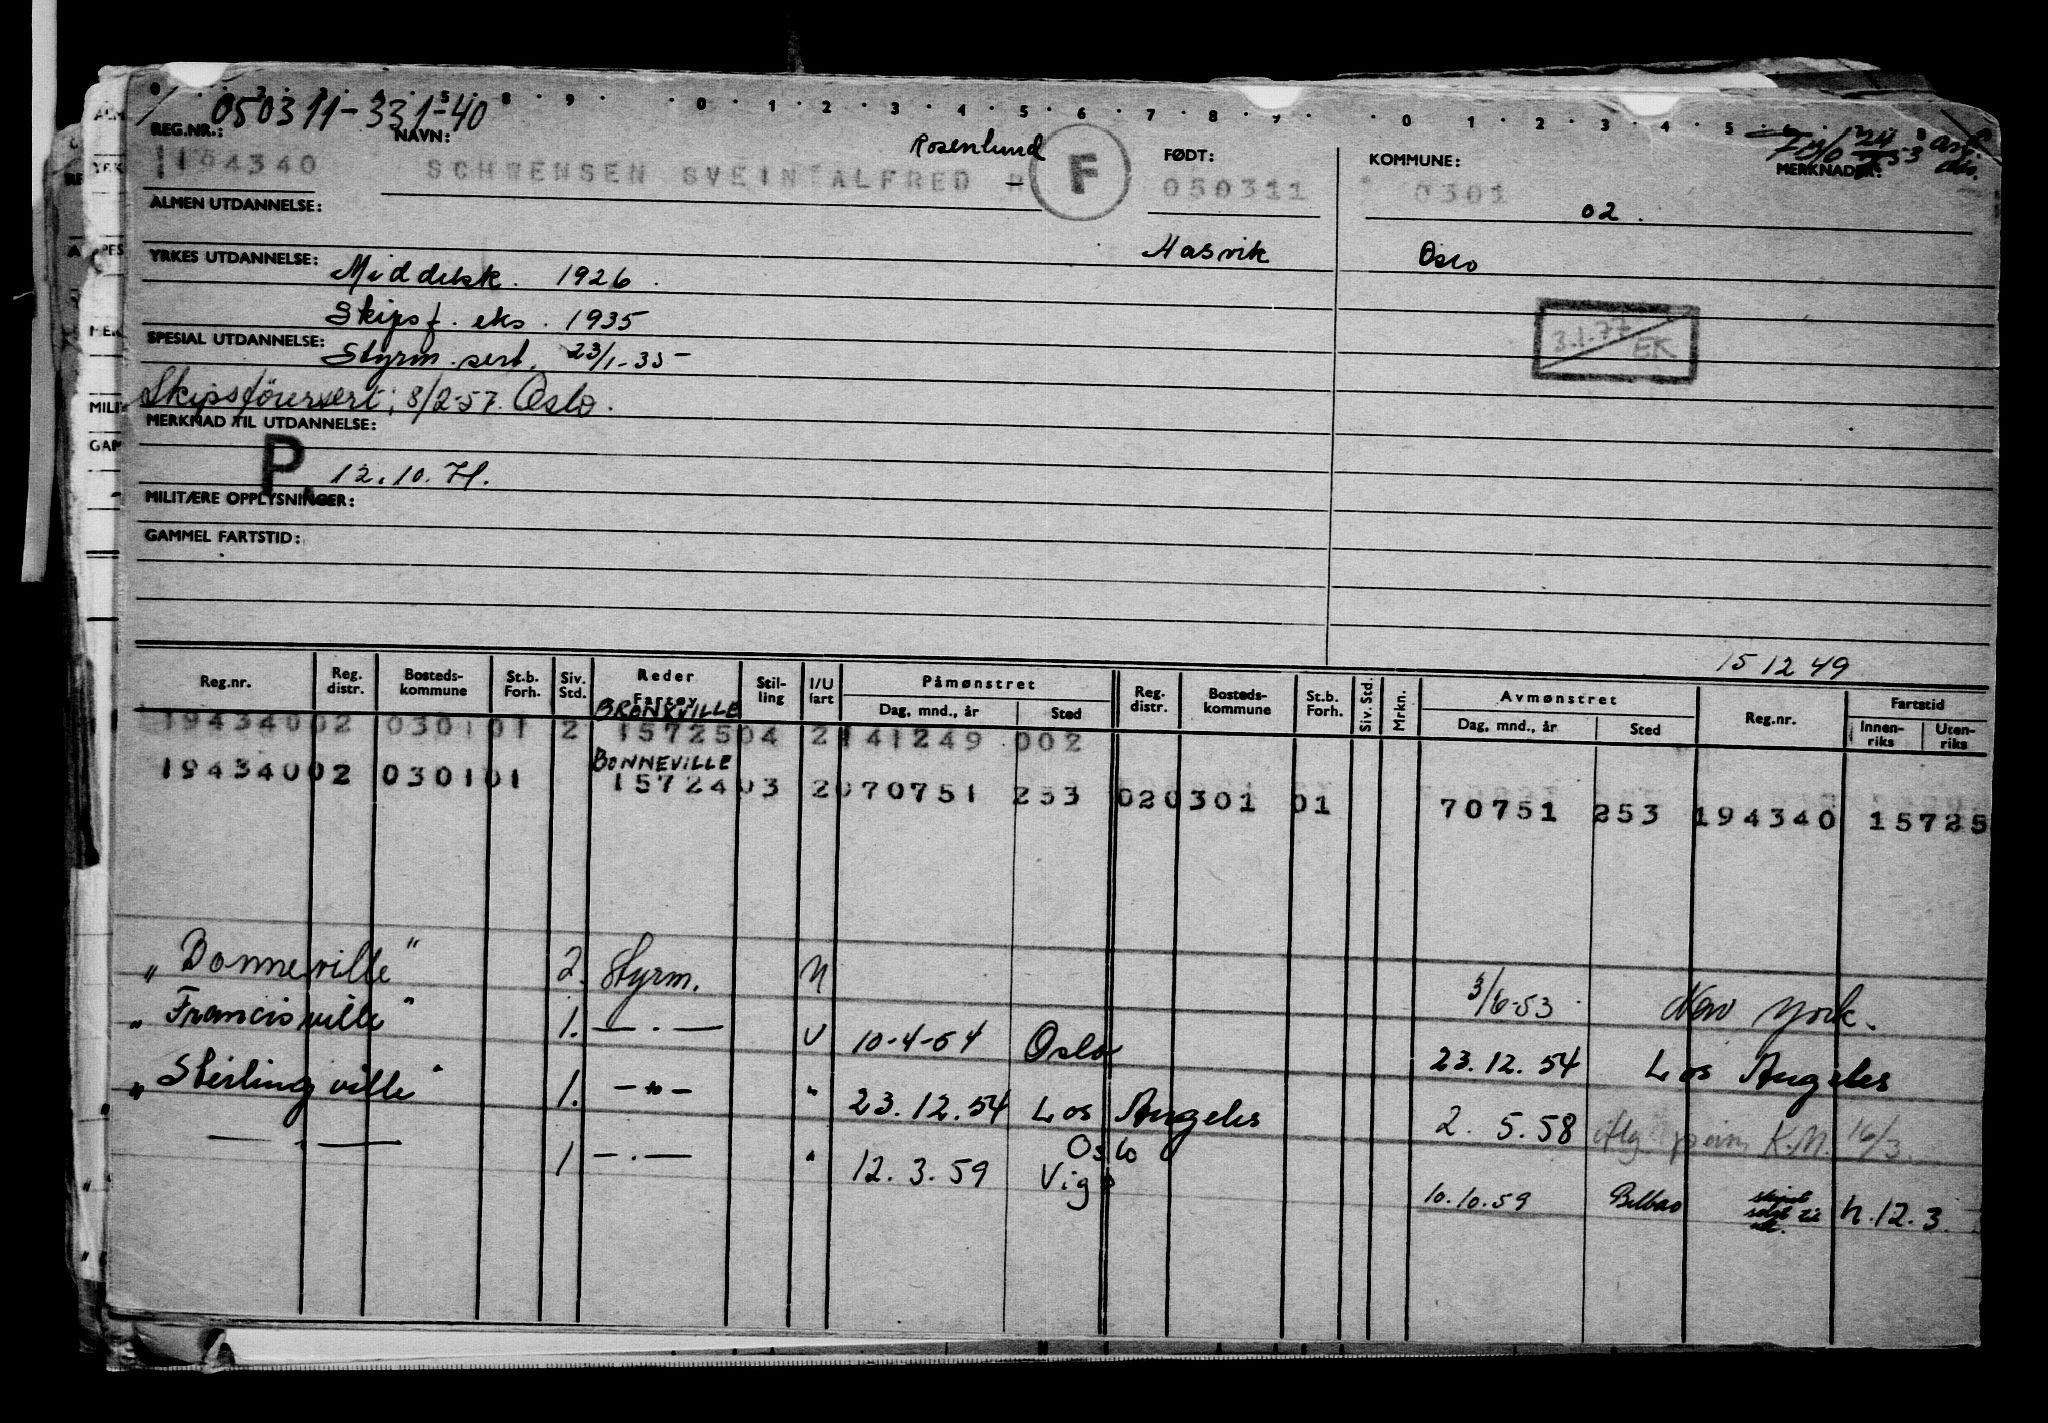 050311-331-40
REG.NR.: NAVN: Rosenlund FØDT: KOMMUNE: MERKNADER:
194340 SCHWENSEN SVEIN ALFRED R F 050311 0301 02.
ALMEN UTDANNELSE:
Hasvik Oslo
YRKES UTDANNELSE: Middelsk. 1926.
Skipsf. eks. 1935
3.1.77 EK
SPESIAL UTDANNELSE: Styrm. sert. 23/1-35
Skipsførersert; 8/2-57. Oslo.
MERKNAD TIL UTDANNELSE:
P. 12.10.71.
MILITÆRE OPPLYSNINGER:
GAMMEL FARTSTID:
15 12 49
Reg.nr. Reg. distr. Bosteds-kommune St.b. Forh. Siv. Std. Reder Fartøy Stil-ling I/U fart Påmønstret Reg. distr. Bosteds-kommune St.b. Forh. Siv. Std. Mrkn. Avmønstret Reg.nr. Fartstid
Dag, mnd., år Sted Dag, mnd., år Sted Innen-riks Uten-riks
BRONXVILLE
194340 02 0301 01 2 15725 04 2 141249 002
BONNEVILLE
194340 02 0301 01 15724 03 2 070751 253 02 0301 01 70751 253 194340 15725
„Bonneville" 2. Styrm. U 3/6-53 New York.
„Francisville" 1. —.— U 10-4-54 Oslo 23.12.54 Los Angeles
„Sterlingville" 1. —"— " 23.12.54 Los Angeles 2. 5.58 K.M. 16/3.
—.— 1 —.— " 12.3.59 Oslo Vigo 10.10.59 Bilbao h.12.3.